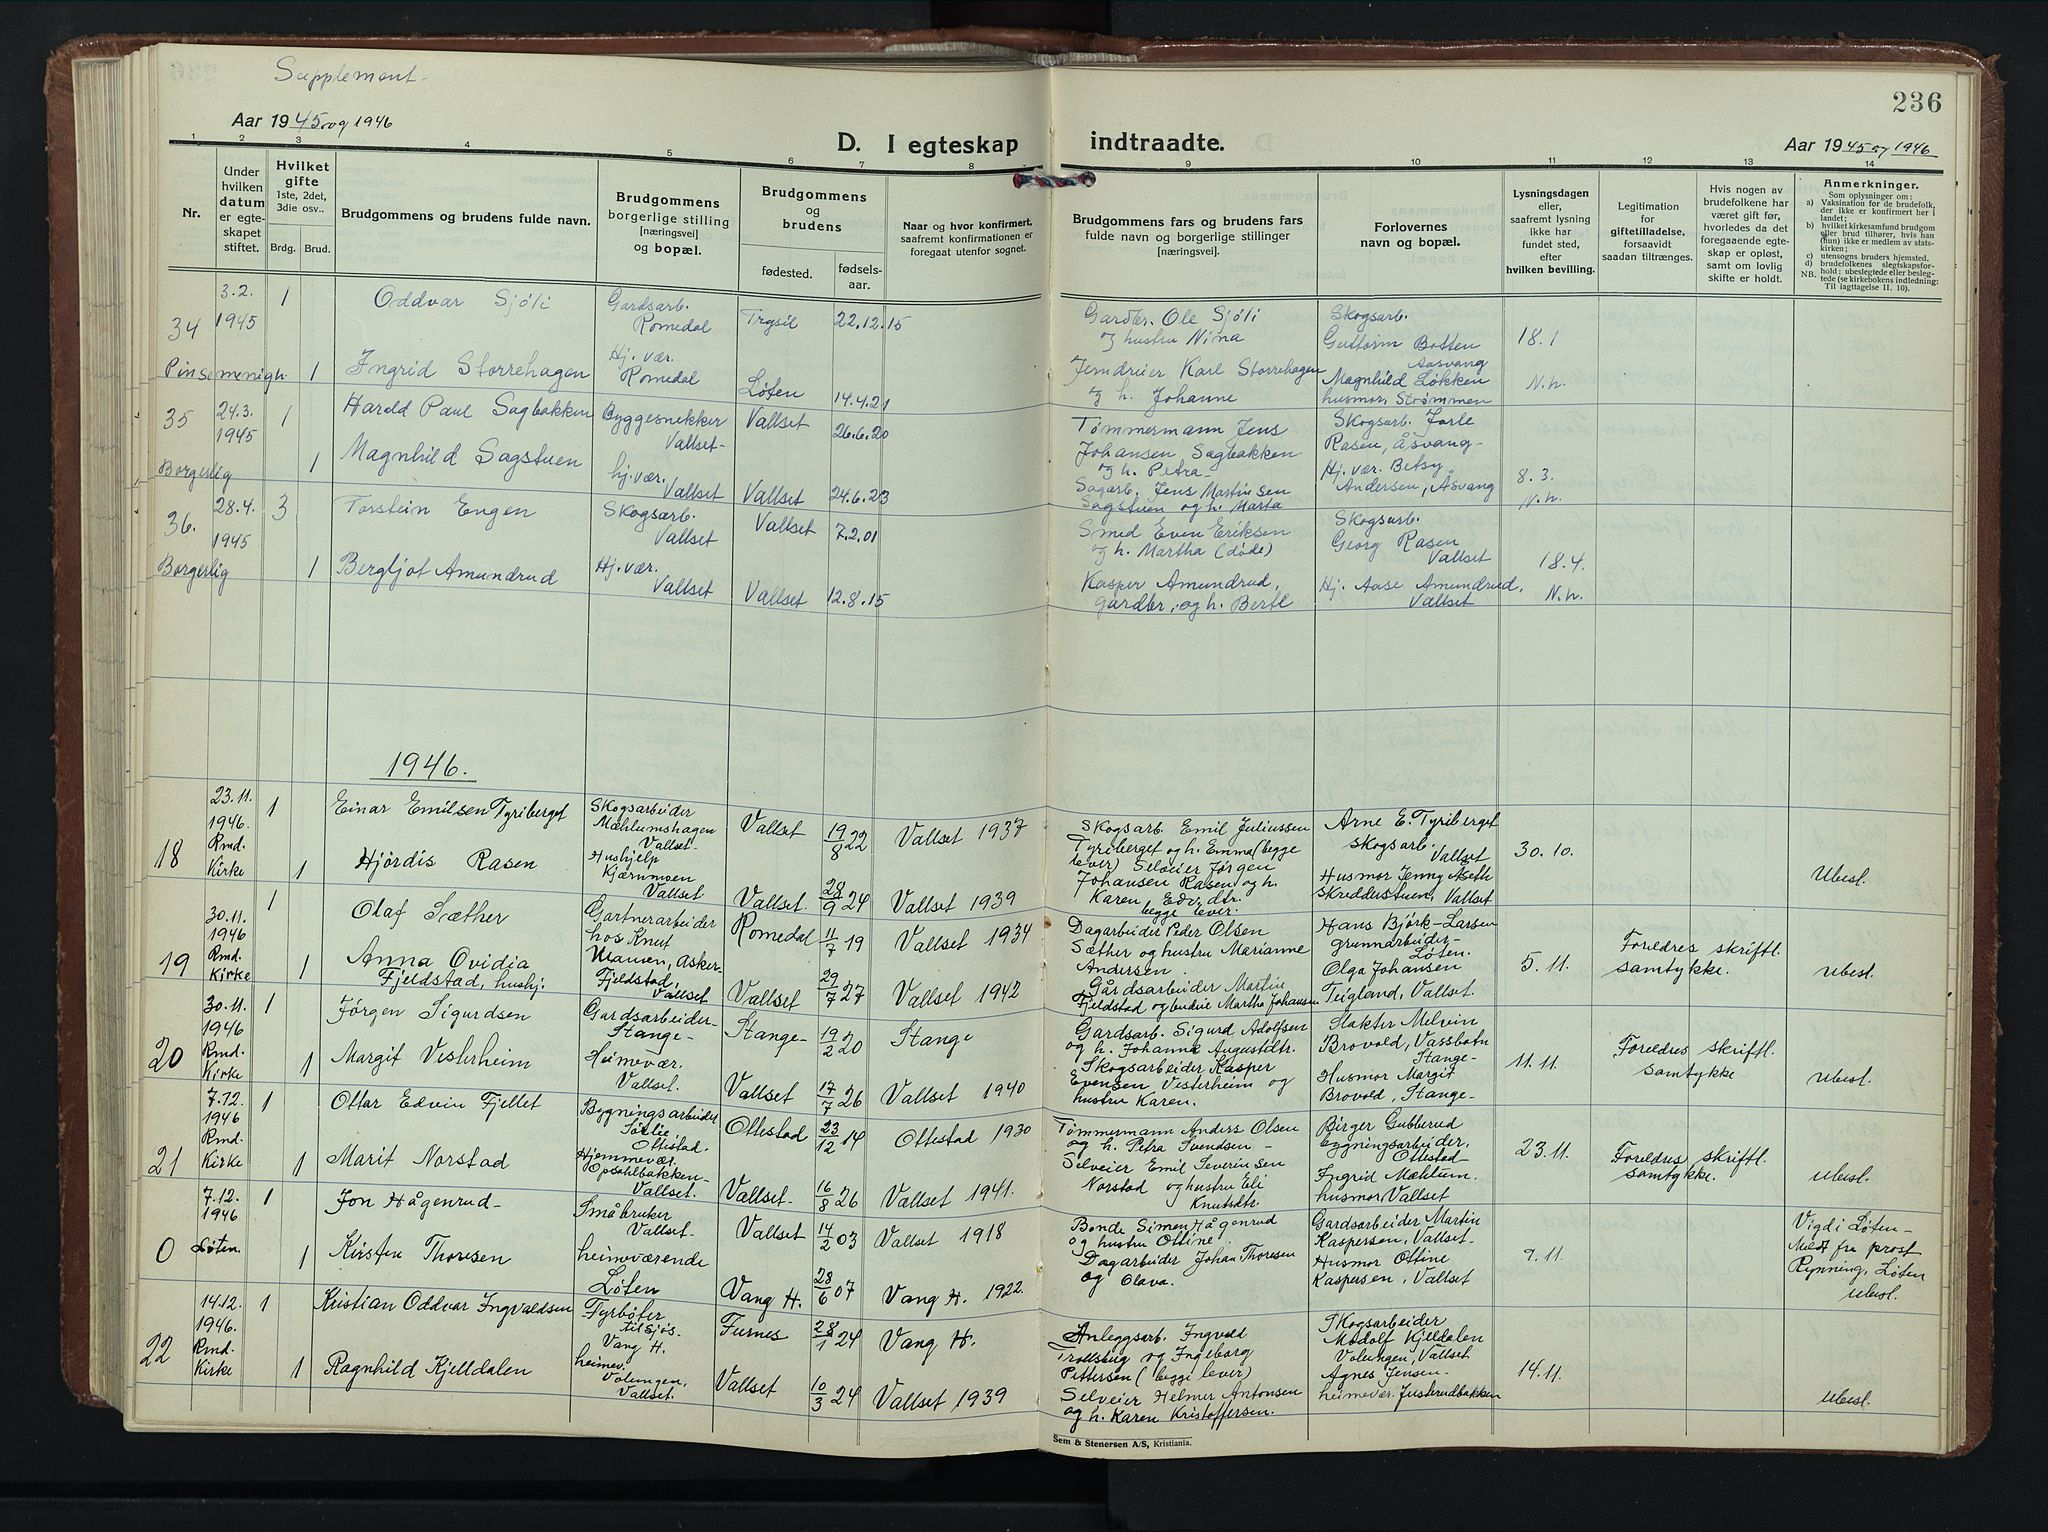 Supplement
236
Aar 1945 og 1946
D. I egteskap indtraadte.
Aar 1945 og 1946
1 2 3 4 5 6 7 8 9 10 11 12 13 14
Nr.
Under hvilken datum er egteskapet stiftet.
Hvilket gifte 1ste, 2det, 3die osv..
Brdg. Brud.
Brudgommens og brudens fulde navn.
Brudgommens borgerlige stilling [næringsvei] og bopæl.
Brudgommens og brudens
fødested. fødselsaar.
Naar og hvor konfirmert, saafremt konfirmationen er foregaat utenfor sognet.
Brudgommens fars og brudens fars fulde navn og borgerlige stillinger [næringsvei].
Forlovernes navn og bopæl.
Lysningsdagen eller, saafremt lysning ikke har fundet sted, efter hvilken bevilling.
Legitimation for giftetilladelse, forsaavidt saadan tiltrænges.
Hvis nogen av brudefolkene har været gift før, hvorledes da det foregaaende egteskap er opløst, samt om lovlig skifte er holdt.
Anmerkninger.
Som oplysninger om:
a) Vaksination for de brudefolk, der ikke er konfirmert her i landet;
b) hvilket kirkesamfund brudgom eller brud tilhører, hvis han (hun) ikke er medlem av statskirken;
c) utensogns bruders hjemsted.
d) brudefolkenes slegtskapsforhold: ubeslegtede eller beslegtede (se kirkebokens indledning:
NB. Til iagttagelse II. 10).
34 3.2. 1945 1 Oddvar Sjöli Gardsarb. Romedal Trysil 22.12.15
Gardbr. Ole Sjöli og hustru Nina
Skogsarb. Guttorm Botten Aasvang
18.1
Pinsemenigh. 1 Ingrid Storrehagen Hj. vær. Romedal Løten 14.4.21
Jerndreier Karl Storrehagen og h. Johanne
Magnhild Løkken husmor, Strømmen
N.h.
35 24.3. 1945 1 Harold Paul Sagbakken Byggesnekker Vallset 26.6.20
Tømmermann Jens Johansen Sagbakken og h. Petra
Skogsarb. Jarle Rasen, Åsvang
Borgerlig 1 Magnhild Sagstuen hj. vær. Vallset Vallset 24.6.23
Sagarb. Jens Martinsen Sagstuen og h. Marta
Hj. vær. Betsy Andersen, Åsvang
8.3. N.h.
36. 28.4. 1945 3 Torstein Engen Skogsarb. Vallset Vallset 7.2.01
Smed Even Eriksen og h. Martha (døde)
Skogsarb. Georg Rasen Vallset
18.4.
Borgerlig 1 Bergljot Amundrud Hj. vær. Vallset Vallset 12.8.15
Kasper Amundrud, gardbr., og h. Bertl
Hj. Aase Amundrud, Vallset
N.h.
1946.
18 23.11. 1946. Rmd. Kirke 1 Einar Emilsen Tyriberget Skogsarbeider Mæhlumshagen Vallset. Vallset 19/8 22 Vallset 1937
Skogsarb. Emil Juliussen Tyriberget og h. Emma (begge lever)
Arne E. Tyriberget skogsarb. Vallset
30.10.
1 Hjördis Rasen Hushjelp Kjærnmoen Vallset. Vallset. 28/9 24 Vallset 1939
Selveier Jørgen Johansen Rasen og h. Karen Edv.dtr. begge lever.
Husmor Jenny Aseth Skreddustuen, Vallset
Ubesl.
19 30.11. 1946 Rmd. Kirke 1 Olaf Sæther Gartnerarbeider hos Knut Ulansen, Asker Romedal 11/7 19 Vallset 1934
Dagarbeider Peder Olsen Sæther og hustru Marianne Andersen
Hans Björk-Larsen grunnarbeider Løten.
5.11.
Foreldres skriftl. samtykke.
1 Anna Ovidia Fjeldstad, hushj. Fjeldstad, Vallset Vallset 29/7 27 Vallset 1942
Gårdsarbeider Martin Fjeldstad og budeie Martha Johansen
Olga Johansen Teigland, Vallset.
ubesl.
20 30.11. 1946 Rmd. Kirke 1 Jørgen Sigurdsen Gardsarbeider Stange Stange 19/2 20 Stange
Gardsarb. Sigurd Adolfsen og h. Johanne Augustdtr.
Slakter Melvin Brovold, Vassbotn Stange
11.11.
Foreldres skriftl. samtykke
1 Margit Vesterheim Heimevær. Vallset. Vallset 17/7 26 Vallset 1940
Skogsarbeider Kasper Evensen Vesterheim og hustru Karen.
Husmor Margit Brovold, Stange
ubesl.
21 7.12. 1946 Rmd. Kirke 1 Ottar Edvin Fjellet Bygningsarbeider Sölie Ottestad. Ottestad 23/12 14 Ottestad 1930
Tømmermann Anders Olsen og h. Petra Svendsen
Birger Gubberud bygningsarbeider, Ottestad
23.11.
Foreldres skriftl. samtykke.
1 Marit Norstad Hjemmevær. Opsahlbakken Vallset. Vallset. 16/8 26 Vallset 1941.
Selveier Emil Severinsen Norstad og hustru Eli Knutsdtr.
Ingrid Mæhlum. husmor Vallset
ubesl.
0 7.12. 1946 Løten. 1 Jon Hågenrud Småbruker Vallset. Vallset 14/2 03 Vallset 1918
Bonde Simen Hågenrud og hustru Ottine.
Gardsarbeider Martin Kaspersen, Vallset
9.11.
Vigd i Løten
Meldt fra prost Rynning, Løten
1 Kirsten Thoresen heimeværende Løten Vang H. 28/6 07 Vang H. 1922.
Dagarbeider Johan Thoresen og Olava.
Husmor Ottine Kaspersen, Vallset
ubesl.
22 14.12. 1946. Rmd. Kirke 1 Kristian Oddvar Ingvaldsen Fyrbøter til sjøs. Vang H. Furnes 28/1 24 Vang H.
Anleggsarb. Ingvald Trollsbug og Ingeborg Pettersen (begge lever)
Skogsarbeider Modolf Kjelldalen Volungen, Vallset
14.11.
1 Ragnhild Kjelldalen heimev. Volungen, Vallset. Vallset 10/3 24 Vallset 1939
Selveier Helmer Antonsen og h. Karen Kristoffersen.
Agnes Jensen heimevær. Justerudbakken
ubesl.
Sem & Stenersen A/S, Kristiania.